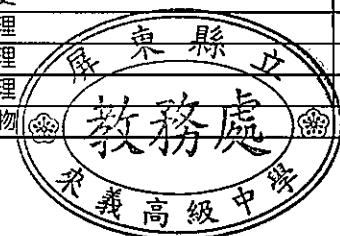 理
理
理
物
屏東縣立
教務處
來義高級中學